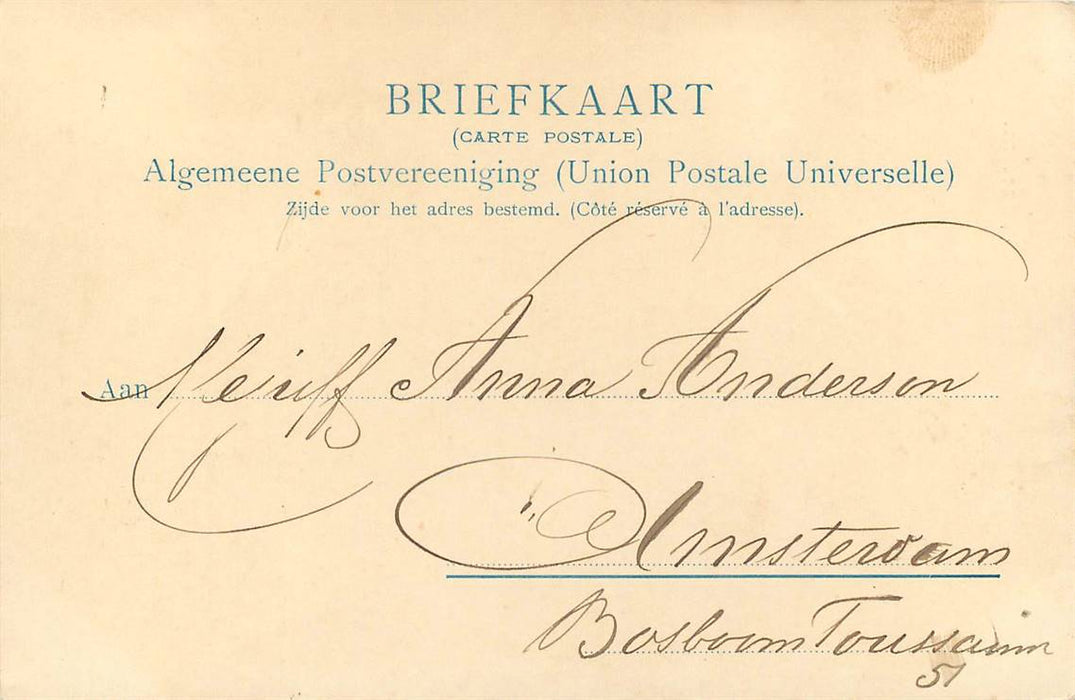 BRIEFKAART
(CARTE POSTALE)
Algemeene Postvereeniging (Union Postale Universelle)
Zijde voor het adres bestemd. (Côté réservé à l'adresse).
Aan Mejuff Anna Anderson
Amsterdam
Bosboom Toussain
51